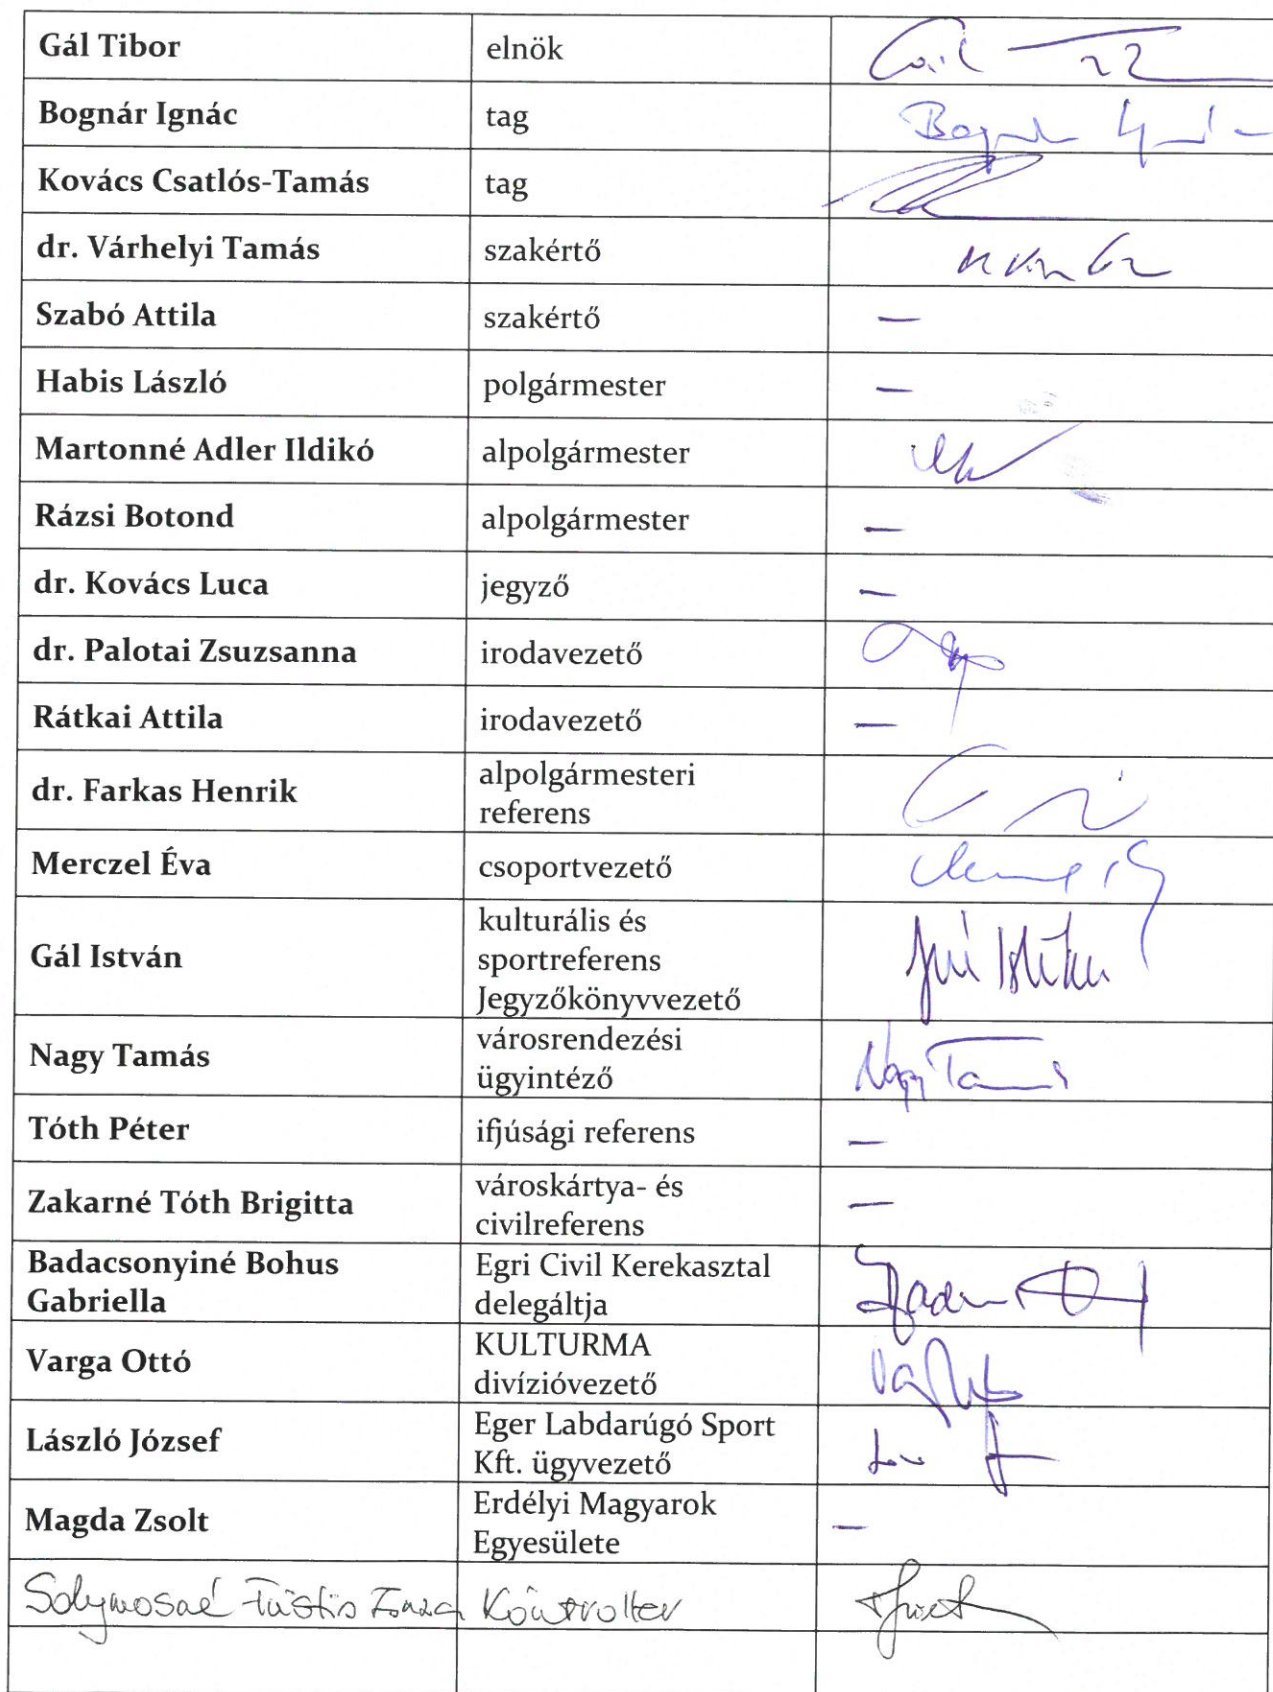 Gál Tibor elnök
Bognár Ignác tag
Kovács Csatlós-Tamás tag
dr. Várhelyi Tamás szakértő
Szabó Attila szakértő –
Habis László polgármester –
Martonné Adler Ildikó alpolgármester
Rázsi Botond alpolgármester –
dr. Kovács Luca jegyző –
dr. Palotai Zsuzsanna irodavezető
Rátkai Attila irodavezető –
dr. Farkas Henrik alpolgármesteri
referens
Merczel Éva csoportvezető
Gál István kulturális és
sportreferens
Jegyzőkönyvvezető
Nagy Tamás városrendezési Nagy Tamás
ügyintéző
Tóth Péter ifjúsági referens –
Zakarné Tóth Brigitta városkártya- és –
civilreferens
Badacsonyiné Bohus
Gabriella
Egri Civil Kerekasztal
delegáltja
Varga Ottó KULTURMA
divízióvezető
László József Eger Labdarúgó Sport
Kft. ügyvezető
Magda Zsolt Erdélyi Magyarok –
Egyesülete
Solymosné Kontroller